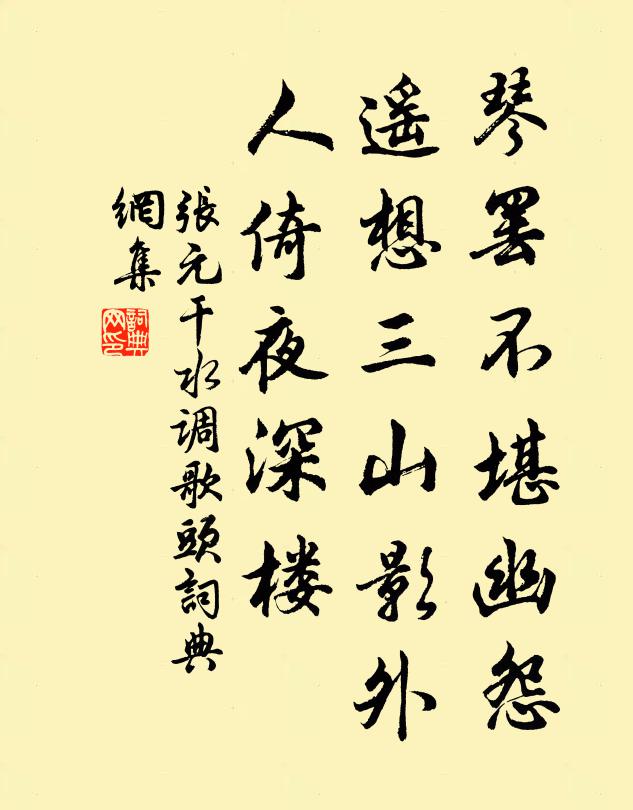 琴罢不堪幽怨
遥想三山影外
人倚夜深楼
張元干水调歌頭詞典
網集
詞典
网印